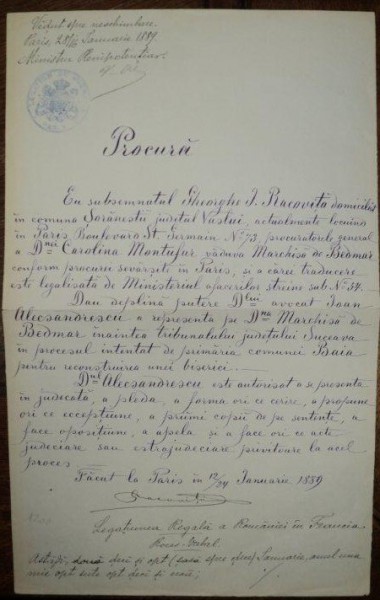 Văzut spre neschimbare.
Paris, 28/16 Ianuarie 1889
Ministru Plenipotențiar.
Procură
Eu subsemnatul Gheorghe I. Racoviță domiciliat
în comuna Șorănești județul Vaslui, actualmente locuind
în Paris Boulevard St. Germain No 73, procuratorele general
a Dnei Carolina Montufar văduva Marchisă de Bedmar
conform procurei săvârșite în Paris, și a cărei traducere
este legalisată de Ministeriul afacerilor străine sub No 54.
Dau deplină putere Dlui avocat Ioan
Alecsandrescu a representa pe Dna Marchisă de
Bedmar înaintea tribunalului județului Suceava
în procesul intentat de primăria comunei Baia
pentru reconstruirea unei biserici.
Dnul Alecsandrescu este autorisat a se presenta
în judecată, a pleda, a forma ori ce cerere, a propune
ori ce ecceptiune, a priimi copii de pe sentințe, a
face opozițiune, a apela și a face ori ce acte
judeciare sau estrajudeciare privitoare la acel
proces
Făcut la Paris în 12/24 Ianuarie 1889
Legațiunea Regală a României în Francia
Astăzi, două deci și opt (șase spre dece) Ianuarie, anul una
mie opt sute opt deci și nouă;